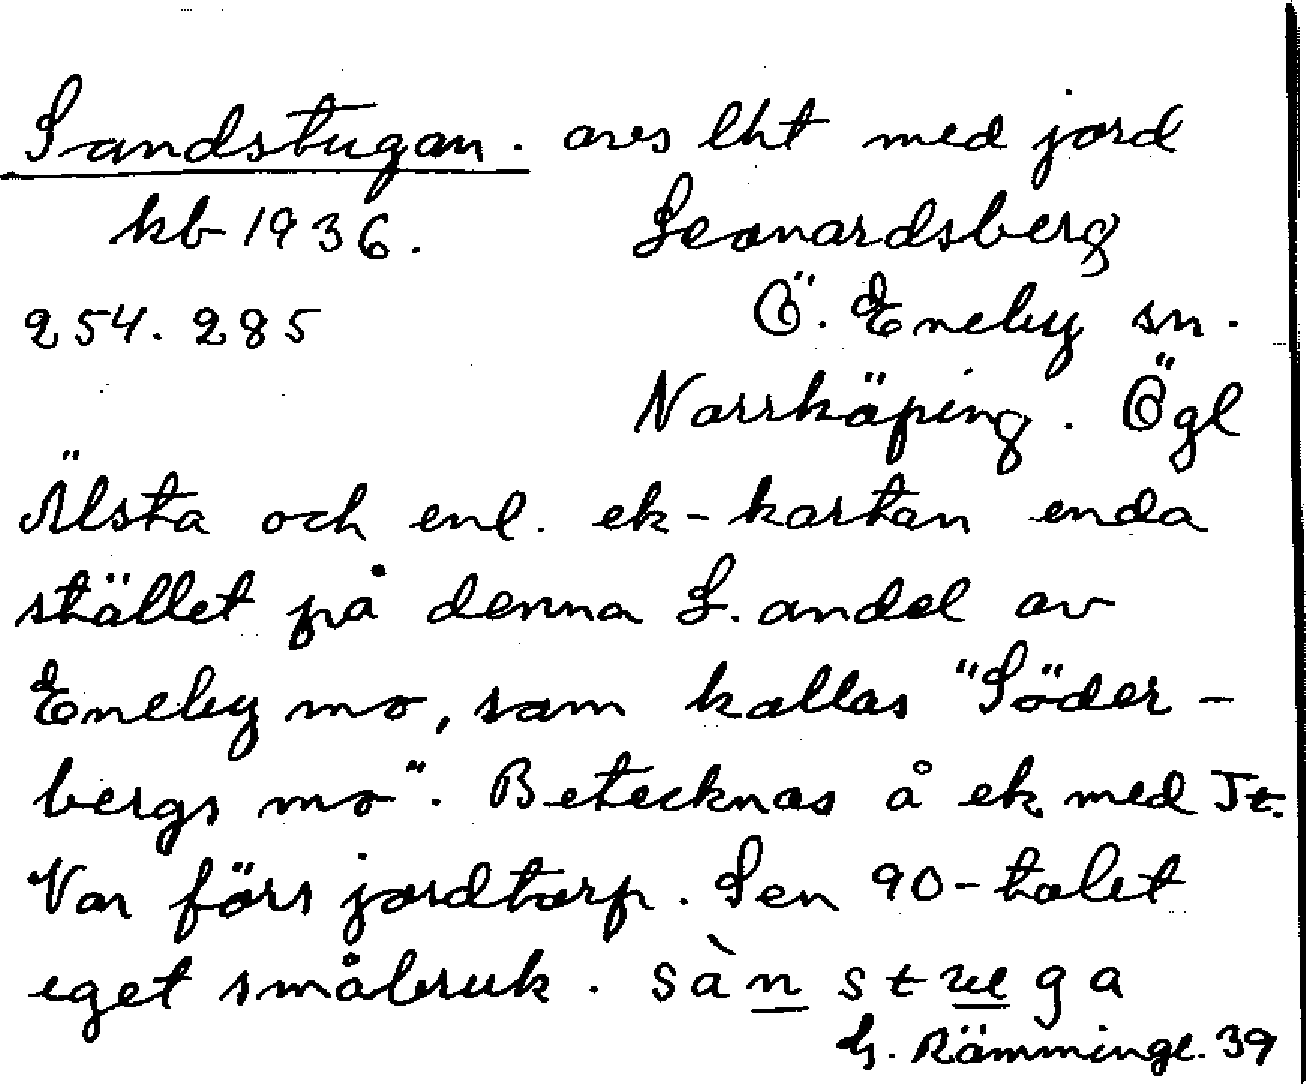 Sandstugan. avs lht med jord
kb 1936. Leonardsberg
254. 285 Ö. Eneby sn.
Norrköping. Ögl
Älsta och enl. ek-kartan enda
stället på denna L. andel av
Eneby mo, som kallas "Söder-
bergs mo". Betecknas å ek med Jt.
Var förr jordtorp. Sen 90-talet
eget småbruk. sàn stuga
G. Rämminge. 39